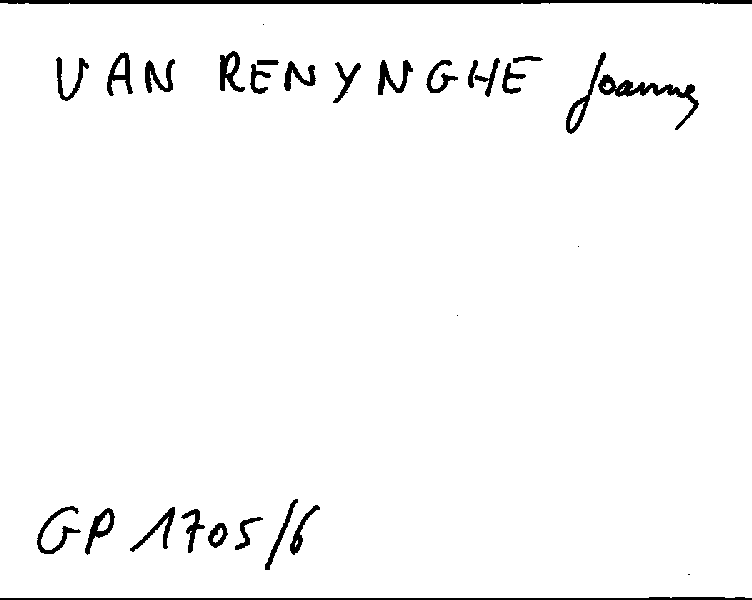 VAN RENYNGHE Joannes
GP 1705/6